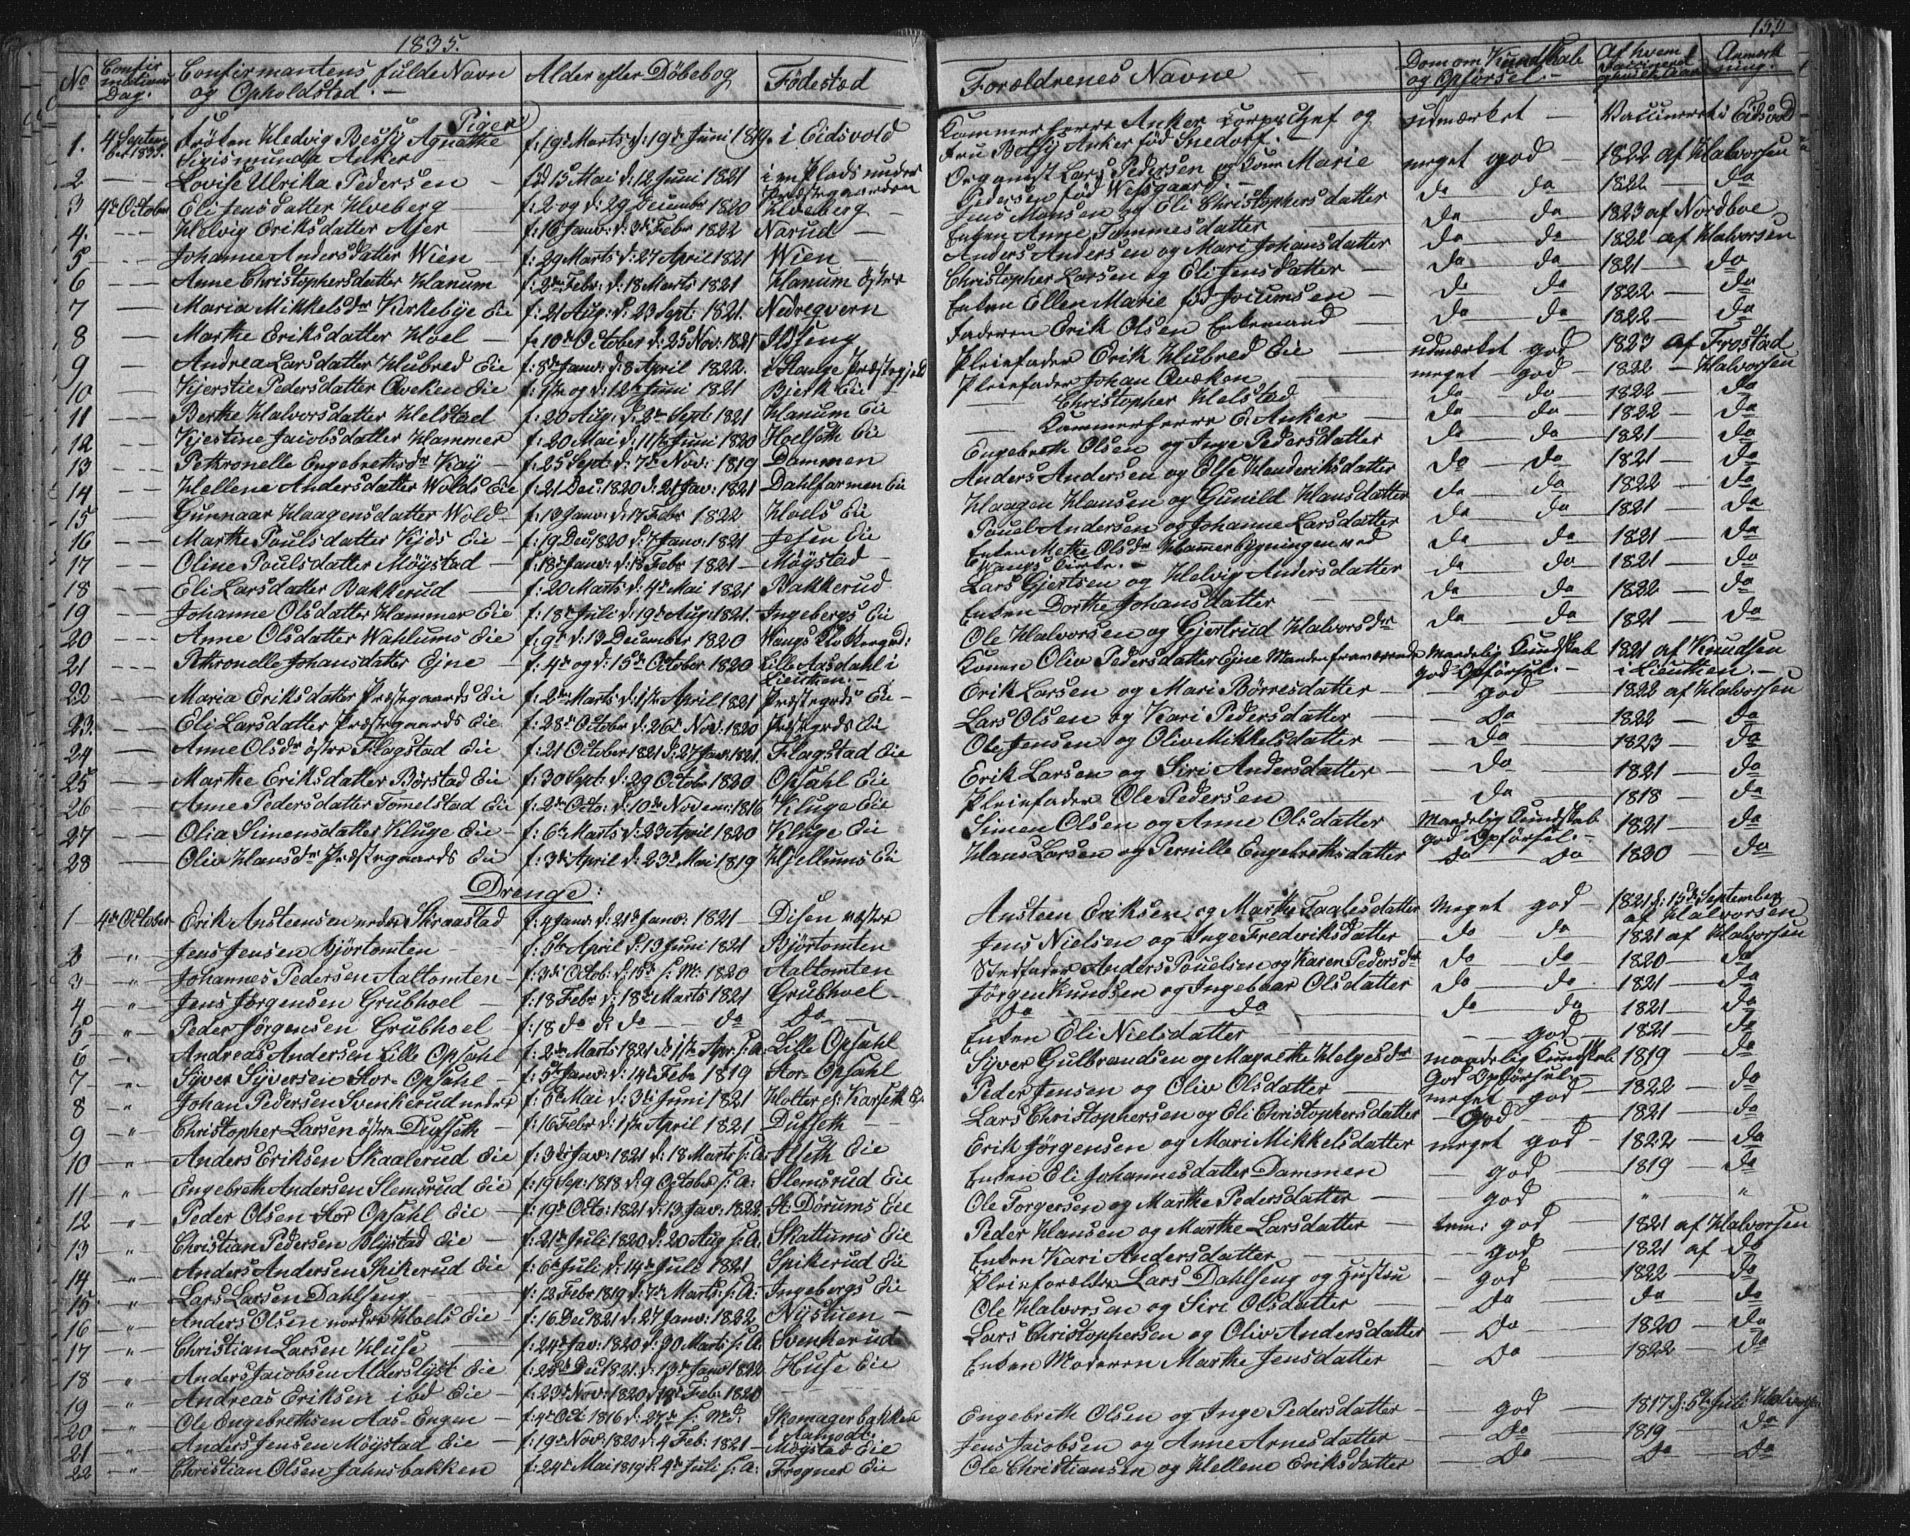 1835.
No
Confirmations Dag.
Confirmantens fulde Navn og Opholdsted.
Alder efter Döbebog
Födestæd
Forældrenes Navne
Dom om Kundskab og Opförsel.
Af hvem Vaccinered
Anmærkning.
Piger
1. 4 September 1835. Fröken Hedvig Betsy Agnathe Sigismunda Anker f: 19de Marts d: 19de Juni 1819. i Eidsvold Kammerherre Anker Corpschef og Fru Betsy Anker föd Snedorf. udmærket Vaccineret i Eidsvold
2 Lovise Ulrika Pedersen föd 15 Mai d: 12te Juni 1821 i en Plads under Præstegaarden Organist Lars Pedersen og Kone Marie Pedersen föd Wessgaard. meget god 1822 af Halvorsen
3 4de October Eli Jensdatter Hveberg f: 2 og d: 29 December 1820 Hveberg Jens Monsen og Eli Christophersdatter do do 1822 do
4. Helvig Eriksdatter Ajer f: 16 Janv: d: 3de Febr 1822 Narud Enken Anne Tommesdatter do do 1823 af Nordboe
5 Johanne Andersdatter Wien f: 29 Marts d: 27 April 1821 Wien Anders Andersen og Mari Johansdatter do do 1822 af Halvorsen
6 Anne Christophersdatter Hanum f: 2den Febr: d: 18 Marts 1821 Hanum östre Christopher Larsen og Eli Jensdatter do do 1821 do
7 Maria Mikkelsdr Kirkebye Eie f: 21 Aug: d: 23 Sept: 1821. Nedregvern Enken Ellen Marie föd Jocumsen do do 1822 do
8 Marthe Eriksdatter Hoel f: 10de October d: 25 Nov: 1821 Ilseng Faderen Erik Olsen Enkemand do do 1822 do
9 Andrea Larsdatter Hubred Eie f: 8de Janv: d: 8 April 1822. i Stange Præstegjeld Pleiefader Erik Hubred Eie udmærket god 1823 af Frostad
10 Kjerstie Pedersdatter Aveken Eie f: 1ste og d: 12te Juni 1821 Bjerk Eie Pleiefader Johan Aveken meget god 1822 Halvorsen
11 Berthe Halvorsdatter Helstad f: 20 Aug: d: 2den Sept: 1821 Hanum Eie Christopher Helstad do do 1822 do
12 Kjestine Jacobsdatter Hammer f: 20 Mai d: 11te Juni 1820 Hoelseth Eie Kammerherre E. Anker do do 1822 do
13 Pethronelle Engebrethsdr Kaÿ f: 25 Sept: d: 7de Nov: 1819 Dammen Engebreth Olsen og Inge Pedersdatter do do 1821 do
14 Hellene Andersdatter Wolds Eie f: 21 Dec: 1820 d: 21 Jav: 1821 Dahlfarmen Eie Anders Andersen og Else Henderiksdatter do do 1821 do
15 Gunnaar Haagensdatter Wold f: 19 Janv: d: 17 Febr 1822 Hoels Eie Haagen Hansen og Gunild Hansdatter do do 1822 do
16 Marthe Poulsdatter Kjös Eie f: 19 Dec 1820 d: 7 Janv: 1821 Jesen Eie Pouel Andersen og Johanne Larsdatter do do 1821 do
17 Oline Poulsdatter Möÿstad f: 18de Janv: d: 18 Febr 1821 Möÿstad Enken Methe Olsdr Hammerbygningen ved Wangs Kirke. do do 1821 do
18 Eli Larsdatter Bakkerud f: 20 Marts d: 4de Mai 1821 Bakkerud Lars Gjertsen og Helvig Andersdatter do do 1821 do
19 Johanne Olsdatter Hammer Eie f: 18de Juli d: 19de Aug 1821. Ingebergs Eie Enken Dorthe Johansdatter do do 1822 do
20 Anne Olsdatter Wahlums Eie f: 9de d: 13 December 1820 Ole Halvorsen og Gjertrud Halvorsdr do do 1821 do
21 Pethronelle Johansdatter Ejne f: 4de og d: 15de October 1820 Lille Aasdahl i Lieuthen. Konen Oliv Pedersdatter Ejne Manden fraværende Maadelig Kundskab god Opförsel. 1821 af Knudsen i Lieuthen.
22 Maria Eriksdatter Præstegaards Eie f: 2den Marts d: 1ste April 1821 Præstegrds Eie Erik Larsen og Mari Börresdatter god 1822 af Halvorsen
23. Eli Larsdatter Præstegaards Eie f: 28de October d: 26de Nov: 1820 Præstegrds Eie Lars Olsen og Kari Pedersdatter Do 1822 do
24 Anne Olsdr östre Flagstad Eie f: 21 October 1821 d: 27 Jav: 1821. Flagstad Eie Ole Jensen og Oliv Mikkelsdatter Do 1823 do
25 Marthe Eriksdatter Börstad Eie f: 30 Sept: d: 29 Octobr 1820 Opsahl Eie Erik Larsen og Siri Andersdatter Do 1821 do
26 Anne Pedersdatter Tomelstad Eie f: 2den Octo: d: 10de Novem: 1816 Kluge Eie Pleiefader Ole Pedersen Do 1818 do
27 Olia Simensdatter Kluge Eie f: 6te Marts d: 23 April 1820 Kluge Eie Simen Olsen og Anne Olsdatter Maadelig Kundskab god Opförsel. 1821 do
28 Olie Hansdr Præstegaards Eie f: 3de April d: 23de Mai 1819 Hjellums Eie Hans Larsen og Pernille Engebrethsdatter Do Do 1820 do
Drenge:
1 4de October Erik Austeensen nedre Skraastad f: 4 Janv: d: 21de Janv: 1821 Disen vestre Austeen Eriksen og Marthe Taalesdatter Meget god 1821 d: 15de September af Halvorsen
2 " Jens Jensen Björtomten f: 5te April d: 13 Juni 1821 Björtomten Jens Nielsen og Inge Frederiksdatter do do 1821 af Halvorsen
3 " Johannes Pedersen Aaltomten f: 3de Octob: d: 15de s: M: 1820 Aaltomten Stedfader Anders Pouelsen og Karen Pedersdr do do 1820 do
4 " Jens Jörgensen Grubhoel f: 18 Febr d: 18de Marts 1821 Grubhoel Jörgen Knudsen og Ingebaar Olsdatter do do 1821 do
5 " Peder Jörgensen Grubhoel f: 18 do d: do do Do do do do do 1821 do
6 " Andreas Andersen Lille Opsahl f: 2den Marts 1821 d: 1ste Apr: s: A: Lille Opsahl Enken Eli Nielsdatter god 1821 do
7 " Syver Syversen Stor-Opsahl f: 5te Janv: d: 14de Febr 1819 Stor-Opsahl Syver Gulbrandsen og Magrethe Helgesdr maadelig Kundskab God Opförsel. 1819 do
8 " Johan Pedersen Svenkerud nedre f: 6te Mai d: 3de Juni 1821 Holter Peder Jensen og Oliv Olsdatter meget god 1822 do
9 " Christopher Larsen östre Dufseth f: 16 Febr d: 1ste April 1821 Dufseth Lars Christophersen og Eli Christophersdatter God 1821 do
10 " Anders Eriksen Skaalerud Eie f: 3de Jav: 1821 d: 18 Marts s: A: Ilseth Eie Erik Jörgensen og Mari Mikkelsdatter meget god 1822 do
11 " Engebreth Andersen Slemsrud Eie f: 19 Sep: 1818 d: 9 October s: A: Slemsrud Eie Enken Eli Johannesdatter Dammen god 1819 do
12 " Peder Olsen Stor Opsahl Eie f: 19de Octo: 1821 d: 13 Jav: 1822. St. Dörums Eie Ole Torgersen og Marthe Pedersdatter god " "
13 " Christian Pedersen Blÿstad Eie f: 21de Juli 1820 d: 20 Aug s: A: Skattums Eie Peder Hansen og Marthe Larsdatter tem: god 1821 af Halvorsen
14 " Anders Andersen Spikerud Eie f: 6te Juli d: 14de Juli 1821 Spikerud Eie Enken Kari Andersdatter god 1821 af do
15 " Lars Larsen Dahlseng f: 12 Febr 1819 d: 7de Marts: s: A: Ingebergs Eie Pleieforældre Lars Dahlseng og Hustru god 1822 do
16 " Anders Olsen nordre Hoels Eie f: 16 Dec 1821 d: 27 Janv: 1822. Nÿstuen Ole Halvorsen og Siri Olsdatter Do do do
17 " Christian Larsen Huse f: 24de Jav: 1820 d: 30 Marts s: A: Svenkerud Lars Christophersen og Oliv Andersdatter Do 1820 do
18 " Anders Jacobsen Alderslyst Eie f: 25de Dec 1821 d: 13de Janv 1822 Huse Eie Enken Moderen Marthe Jensdatter Do 1822 do
19 " Andreas Eriksen ibd Eie f: 23de Nov: 1820 Feb: 1820
20 " Ole Engebrethsen Aas-Engen f: 4de Oct 1816 d: 27de s: Md: Skomagerbakken i Aamodt. Engebreth Olsen og Inge Pedersdatter god 1817 d: 5te Juli Halvorsen
21 " Anders Jensen Möÿstad Eie f: 19de Nov: 1820 d: 4 Feb: 1821 Möystad Eie Jens Jacobsen og Anne Arnesdatter Do 1819 do
22 " Christian Olsen Jahnsbakken f: 24de Mai 1819 d: 4de Juli s: A: Frogner Eie Ole Christiansen og Hellene Eriksdatter Do Do Do